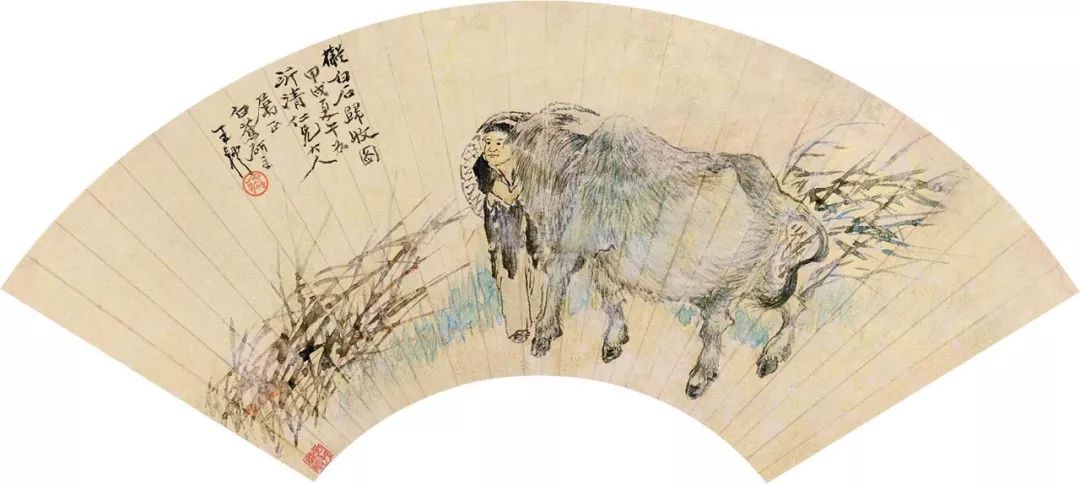 擬白石歸牧圖
甲戌夏午為
沂清仁兄大人
屬正
白蕉研主
王礼